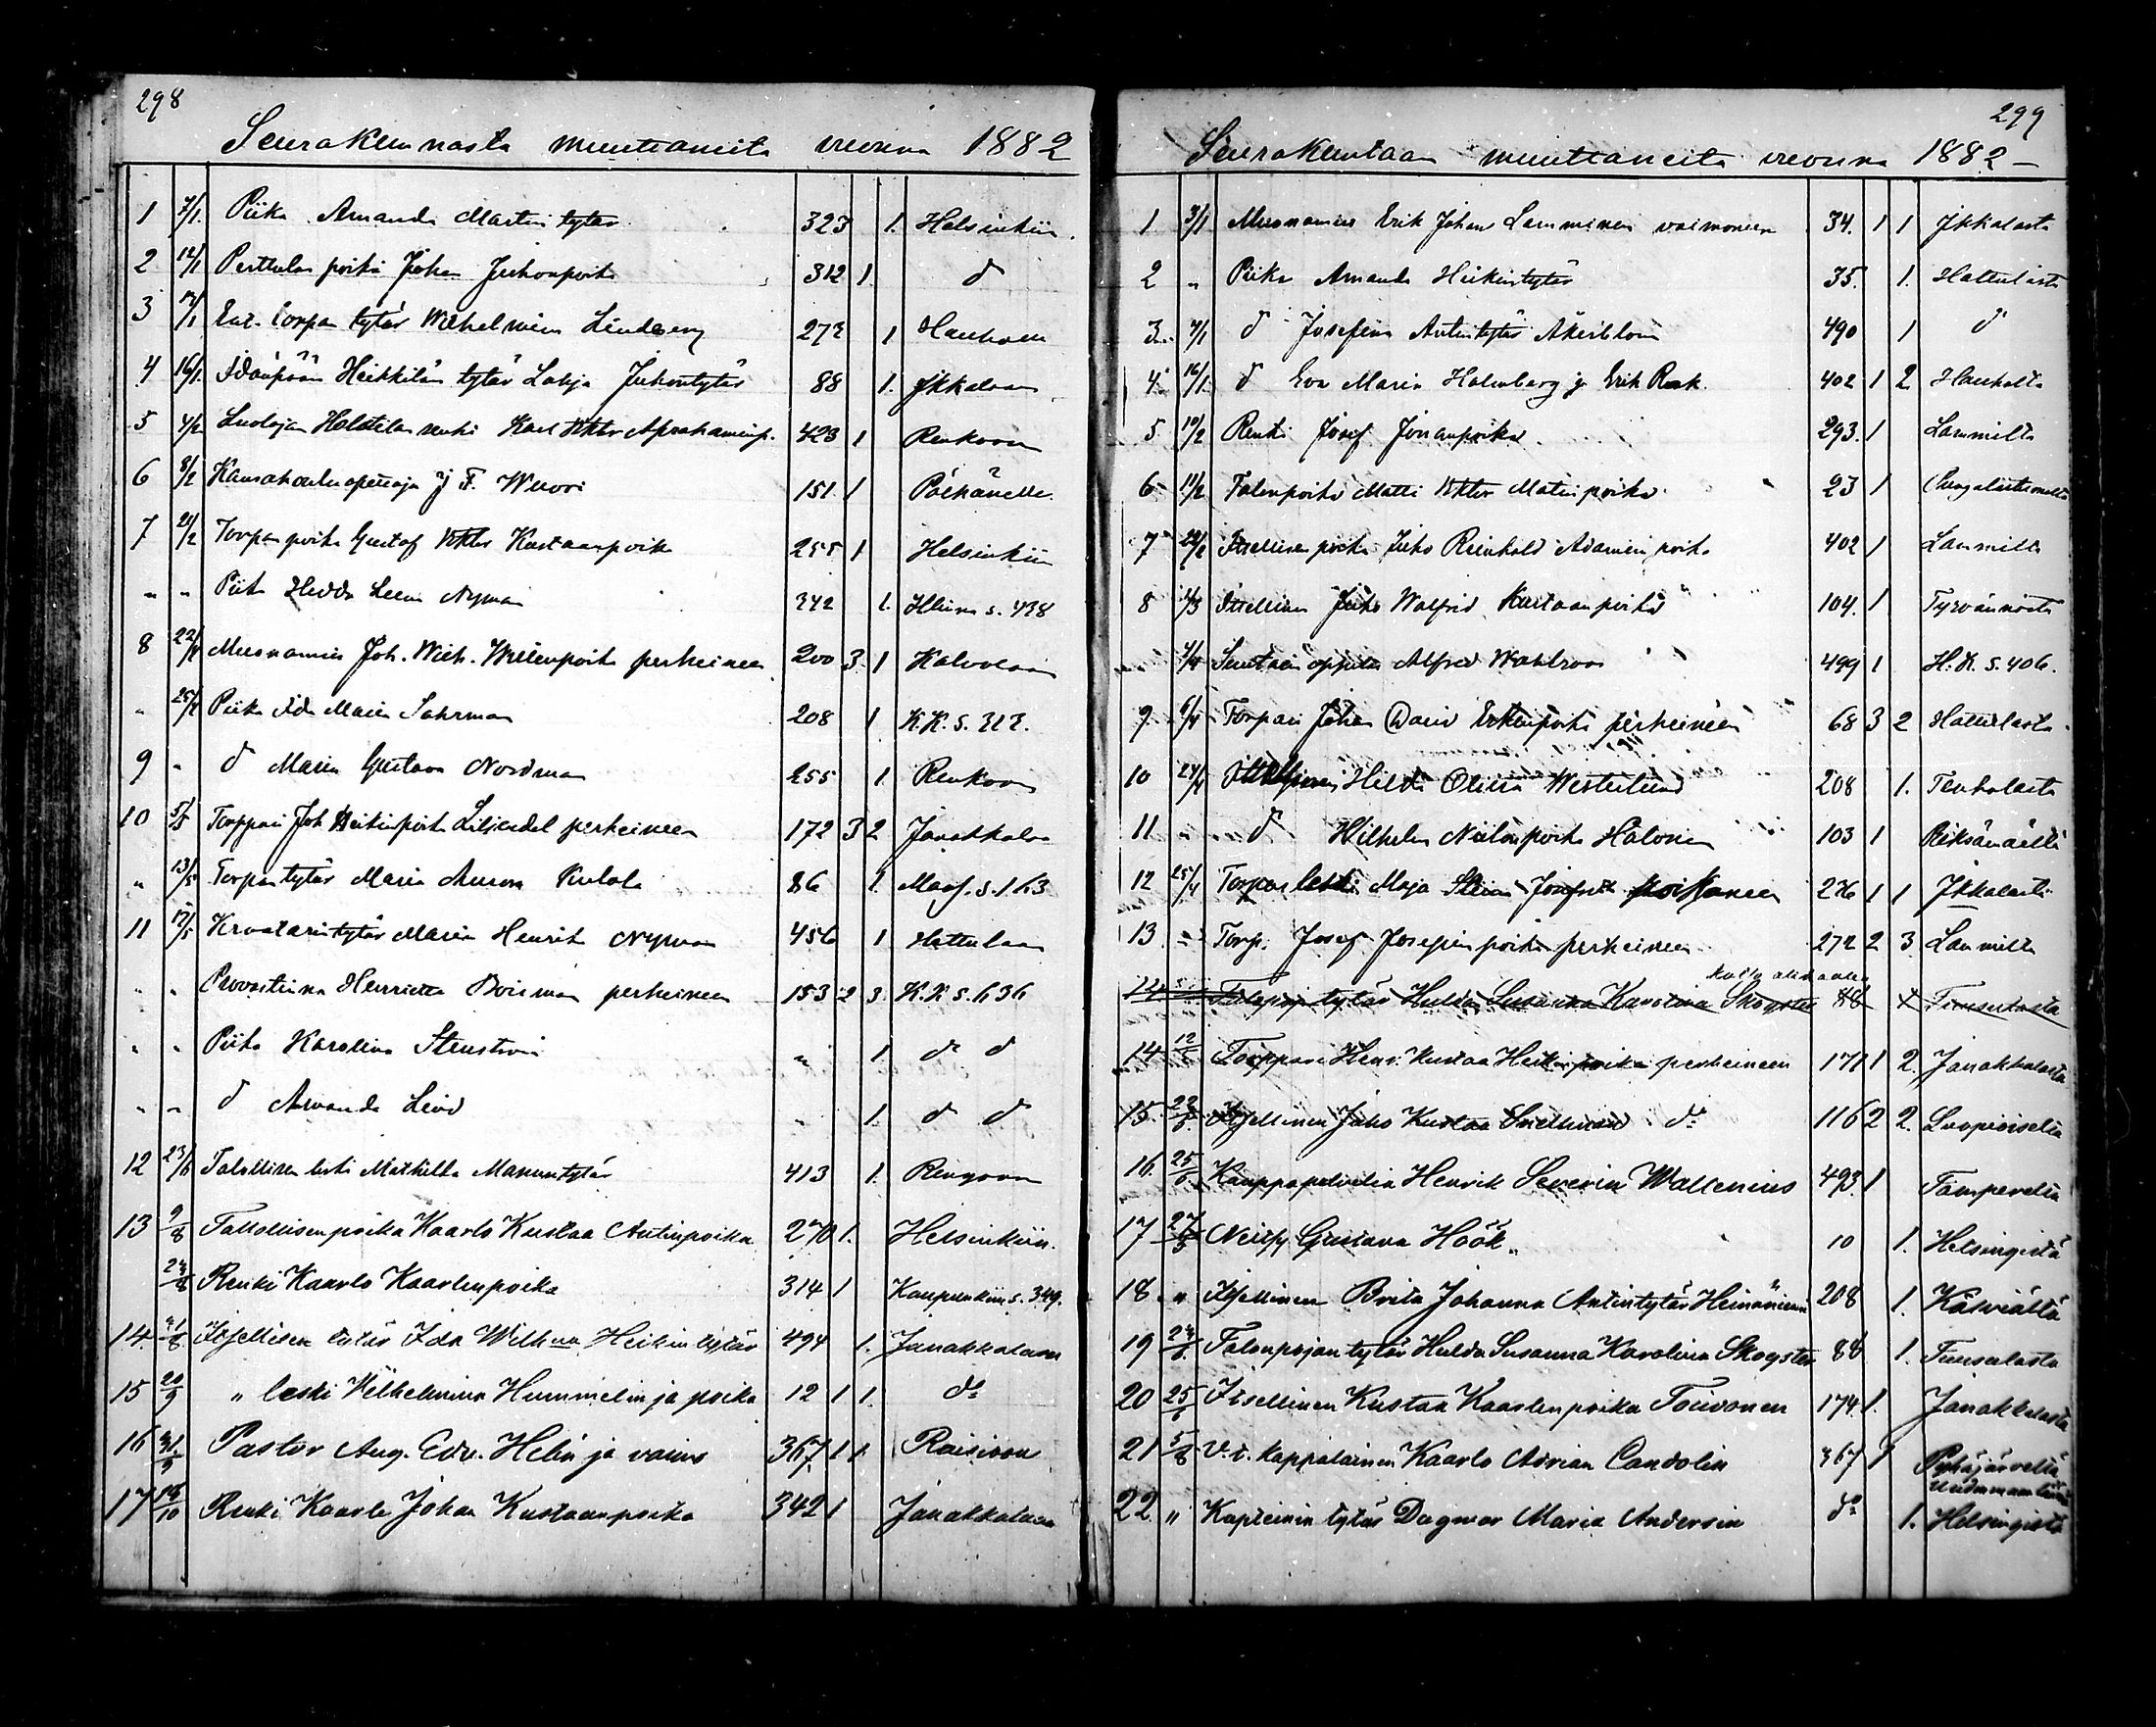 298
Seurakunnasta muuttaneita vuonna 1882
1 7/1. Piika Amanda Martin tytär 323 1. Helsinkiin.
2 12/1 Perttulan poika Johan Juhonpoika 312 1. d
3 14/1 torpan tytär Wilhelmina Lindberg 273 1 Hauhoon
4 16/1. Idänpään Heikkilän tytär Juhontytär 88 1. Ikkalaan
5 4/2 renki Karl Viktor Aprahaminp. 423 1 Renkoon
6 8/2 Kansakoulu opettaja J F. Wuori 151 1 Pälkäneelle
7 21/2 Torpan poika Gustaf Viktor Kustaanpoika 255 1 Helsinkiin
" " Piika Hedda Leena Nyman 342 1. s. 438
8 22/4 Muonamies Joh. Wilh. perheineen 200 3 1 Kalvolaan
" 25/4 Piika Ida Maria Sahrman 208 1 K.K. s. 317.
9 " d Maria Gustava Nordman 255 1. Renkoon
10 5/5 Torppari Joh Heikinpoika Liljendal perheineen 172 3 2 Janakkalaan
" 13/5 Torpan tytär Maria Kulala 86 1. Maas. s. 163
11 17/5 tytär Maria Henrika Nyman 456 1 Hattulaan
" " Provastinna Henrietta Boisman perheineen 153 2 3. K.K s. 636
" " Piika Karolina Stenström " 1. d d
" " d Amanda Lind " 1. d d
12 23/6 Talollisen leski Mathilda Manuntytär 413 1. Rengoon
13 9/8 Talollisen poika Kaarlo Kustaa Antinpoika 270 1. Helsinkiin.
24/8 Renki Kaarlo Kaarlenpoika 314 1 Kaupunkiin s. 349.
14. 31/8 Itsellisen tytär Ida Wilhna Heikin tytär 494 1. Janakkalaan
15 20/9 " leski Wilhelmina Hummelin ja poika 12 1 1. do
16 Pastor Aug. Edv. Helin ja vaimo 367. 1 1. Raisioon
17 18/10 Renki Kaarlo Johan Kustaanpoika 342 1 Janakkalaan
299
Seurakuntaan muuttaneita vuonna 1882 –
1 3/1 Muonamies Erik Johan Lamminen vaimoneen 34. 1 1 Ikkalasta
2 " Piika Amanda Heikintytär 35. 1. Hattulasta
3. 4/1 d Josefina Antintytär Åkerblom 490 1 d
4. 16/1. d Eva Maria Holmberg j. Erik 402 1 2 Hauholta
5 10/2 Renki Josef Joonanpoika 293. 1 Lammilta
6 11/2 Talonpoika Matti Viktor Matinpoika 23 1
7 22/2 Itsellisen poika Juho Reinhold Adamin poika 402 1 Lammilta
8 4/3 Itsellinen Juho Walfrid Kustaanpoika 104. 1 Tyrvännöstä
4/4 oppilas Alfred Wahlroos 499 1 H. K. s. 406.
9 6/4 Torpari Johan David Erkinpoika perheineen 68 3 2 Hattulasta
10 24/4 Hilda Olivia Westerlund 208 1. Tenholasta
11 " d Wilhelm Niilonpoika Halonen 103 1 Pieksämäeltä
12 25/4 Torpan leski Maja Stina poikaneen 276 1 1 Ikkalasta
13 " Torp. Josef Josepinpoika perheineen 272 2 3. Lammilta
14 Talonpojan tytär Hulda Susanna Karolina Skogster 88 1 Tuusulasta
14 12/5 Torppari Henr. Kustaa Heikinpoika perheineen 171 1 2. Janakkalasta
15. 23/5. Itsellinen Juho Kustaa Snellman do 116 2 2. Luopioiselta
16. 25/5 Kauppapalvelia Henrik Severin Wallenius 493 1 Tampereelta
17 27/5 Neitsy Gustava Höök. 10 1. Helsingistä
18. " Itsellinen Brita Johanna Antintytär Heinäniemi 208 1. Kälviältä
19 24/6. Talonpojan tytär Hulda Susanna Karolina Skogster 88 1. Tuusulasta
20 25/6 Itsellinen Kustaa Kaarlenpoika Toivonen 174 1. Janakkalasta
21 5/8 V. t. kappalainen Kaarlo Adrian Candolin 367 1 Pyhäjärveltä Uudenmaan läänissä
22. " Kapteinin tytär Dagmar Maria Andersin do 1. Helsingistä